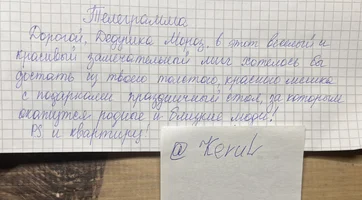 Телеграмма
Дорогой, Дедушка Мороз, в этот веселый и
красивый замечательный миг хотелось бы
достать из твоего толстого, красного мешка
с подарками праздничный стол, за которым
окажутся родные и близкие люди!
PS и квартиру!